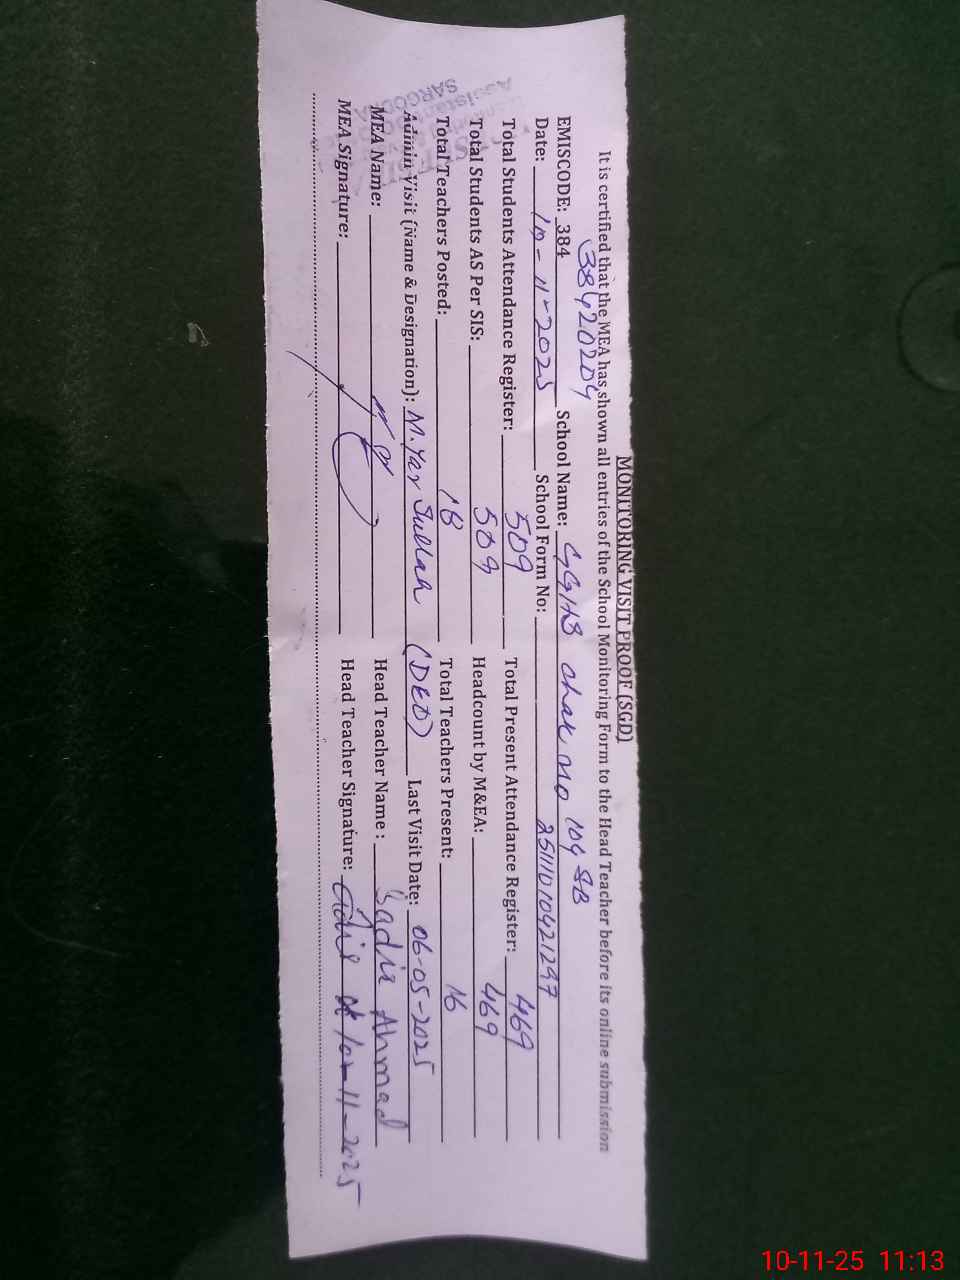 MONITORING VISIT PROOF (SGD)
It is certified that the MEA has shown all entries of the School Monitoring Form to the Head Teacher before its online submission
38420204
EMISCODE: 384 School Name: GGHS Chak no 104 SB
Date: 10-11-2025 School Form No: 25111010421297
Total Students Attendance Register: 509 Total Present Attendance Register: 469
Total Students AS Per SIS: 509 Headcount by M&EA: 469
Total Teachers Posted: 18 Total Teachers Present: 16
Admin Visit (Name & Designation): M. Yar (DEO) Last Visit Date: 06-05-2025
MEA Name: Head Teacher Name : Sadia Ahmad
MEA Signature: Head Teacher Signature: 10-11-2025
Assista
SARGODHA
10-11-25 11:13